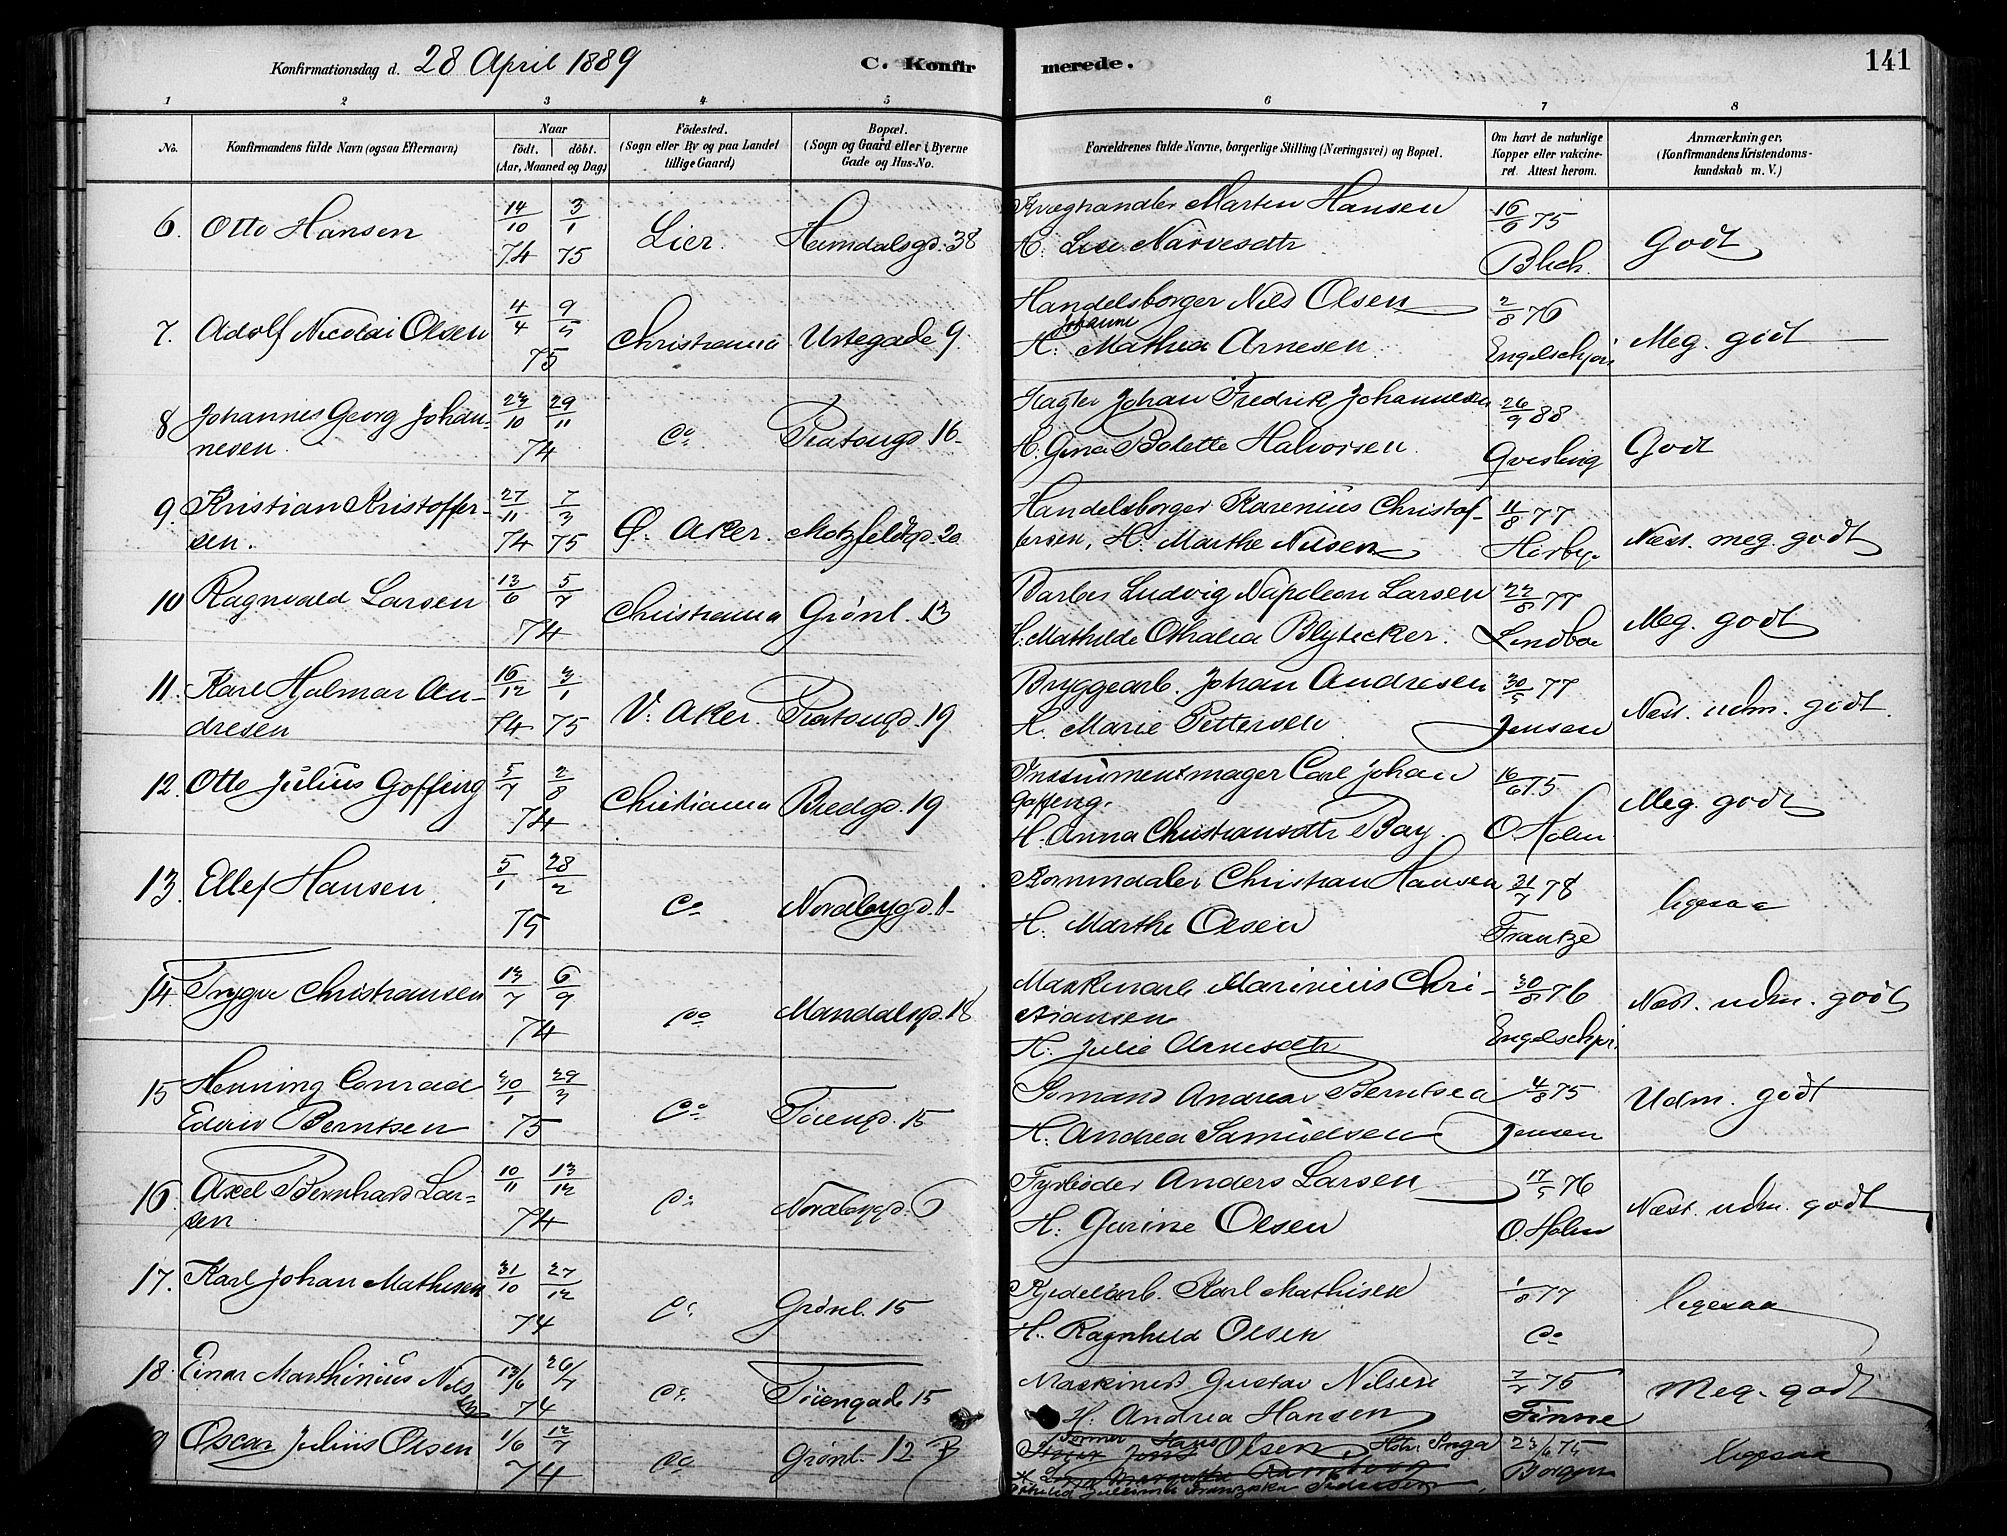 Konfirmationsdag d. 28 April 1889
C. Konfirmerede.
141
1 2 3 4 5 6 7 8
No.
Konfirmandens fulde Navn (ogsaa Efternavn)
Naar
födt. döbt.
(Aar, Maaned og Dag)
Födested.
(Sogn eller By og paa Landet
tillige Gaard)
Bopæl.
(Sogn og Gaard eller i Byerne
Gade og Hus-No.
Forældrenes fulde Navne, borgerlige Stilling (Næringsvei) og Bopæl.
Om havt de naturlige
Kopper eller vakcine-
ret. Attest herom.
Anmærkninger.
(Konfirmandens Kristendoms-
kundskab m. V.)
6. Otto Hansen 14/10 74 3/1 75 Lier. Heimdalsgd. 38
Kræghandler Martin Hansen
H. Lise Narvesdtr
75 Blich. Godt
7. Adolf Nicolai Olsen 4/4 9/5 75 Christiania Urtegade 9.
Handelsborger Nils Olsen
H. Johanne Mathea Arnesen
2/8 76 Engelschjøn Meg. godt
8 Johannes Georg Johan-
nesen. 23/10 29/11 74 Do Platougd. 16
Slagter Johan Fredrik Johannesen
H. Gina Bolette Halvorsen.
26/9 88 Qvisling Godt
9. Kristian Kristoffer-
sen. 27/11 74 7/3 75 Ø. Aker. Motzfeldtgd. 20
Handelsborger Karenius Christof-
fersen, H. Marthe Nilsen
11/8 77 Næst. meg. godt
10 Ragnvald Larsen 13/6 5/7 74 Christiania Grønl. 13
Barber Ludvig Napoleon Larsen
H. Mathilde Othalia Blytecker.
22/8 77 Lindboe Meg. godt
11. Karl Hjalmar An-
dresen 16/12 74 3/1 75 V. Aker. Platougd. 19
Bryggearb. Johan Andresen
H. Marie Pettersen
30/5 77 Jensen Næst. udm. godt.
12. Otto Julius Goffeng 5/7 2/8 74 Christiania Bredgd. 19
Instrumentmager Carl Johan
Goffeng.
H. Anna Christiansdtr Bay.
16/6 75 O. Holm Meg. godt
13. Ellef Hansen. 5/1 28/2 75 Do Nordbygd. 1
Christian Hansen
H. Marthe Olsen
31/7 78 Frantze ligesaa
14. Trygve Christiansen 13/7 6/9 74 Do Mandalsgd. 18
Maskinarb Marinius Chri-
stiansen
H. Julie Arnesdtr
30/8 76 Engelschjøn. Næst. udm. godt
15 Henning Conrad
Edvin Berntsen 30/1 29/3 75 Do Tøiengd. 15
Sømand Andreas Berntsen
H. Andrea Samuelsen
4/8 75 Jensen Udm. godt
16. Axel Bernhard Lar-
sen 10/11 13/12 74 Do Nordbygd. 6
Fyrbøder Anders Larsen
H. Gurine Olsen
17/5 76 O. Holm Næst. udm. godt
17. Karl Johan Mathisen 31/10 27/12 74 Do Grønl. 15
Kjedelarb. Karl Mathisen
H. Ragnhild Olsen
1/8 77 Do ligesaa
18. Einar Marthinius Nilsen 13/6 26/7 74 Do Tøiengade 15
Maskinist Gustav Nilsen
H. Andrea Hansen
7/7 75 Finne Meg. godt
9 Oscar Julius Olsen 1/6 12/7 74 Do Grønl. 12 B
Former Hans Olsen, Hstr. Inga
23/6 75 Borgen ligesaa